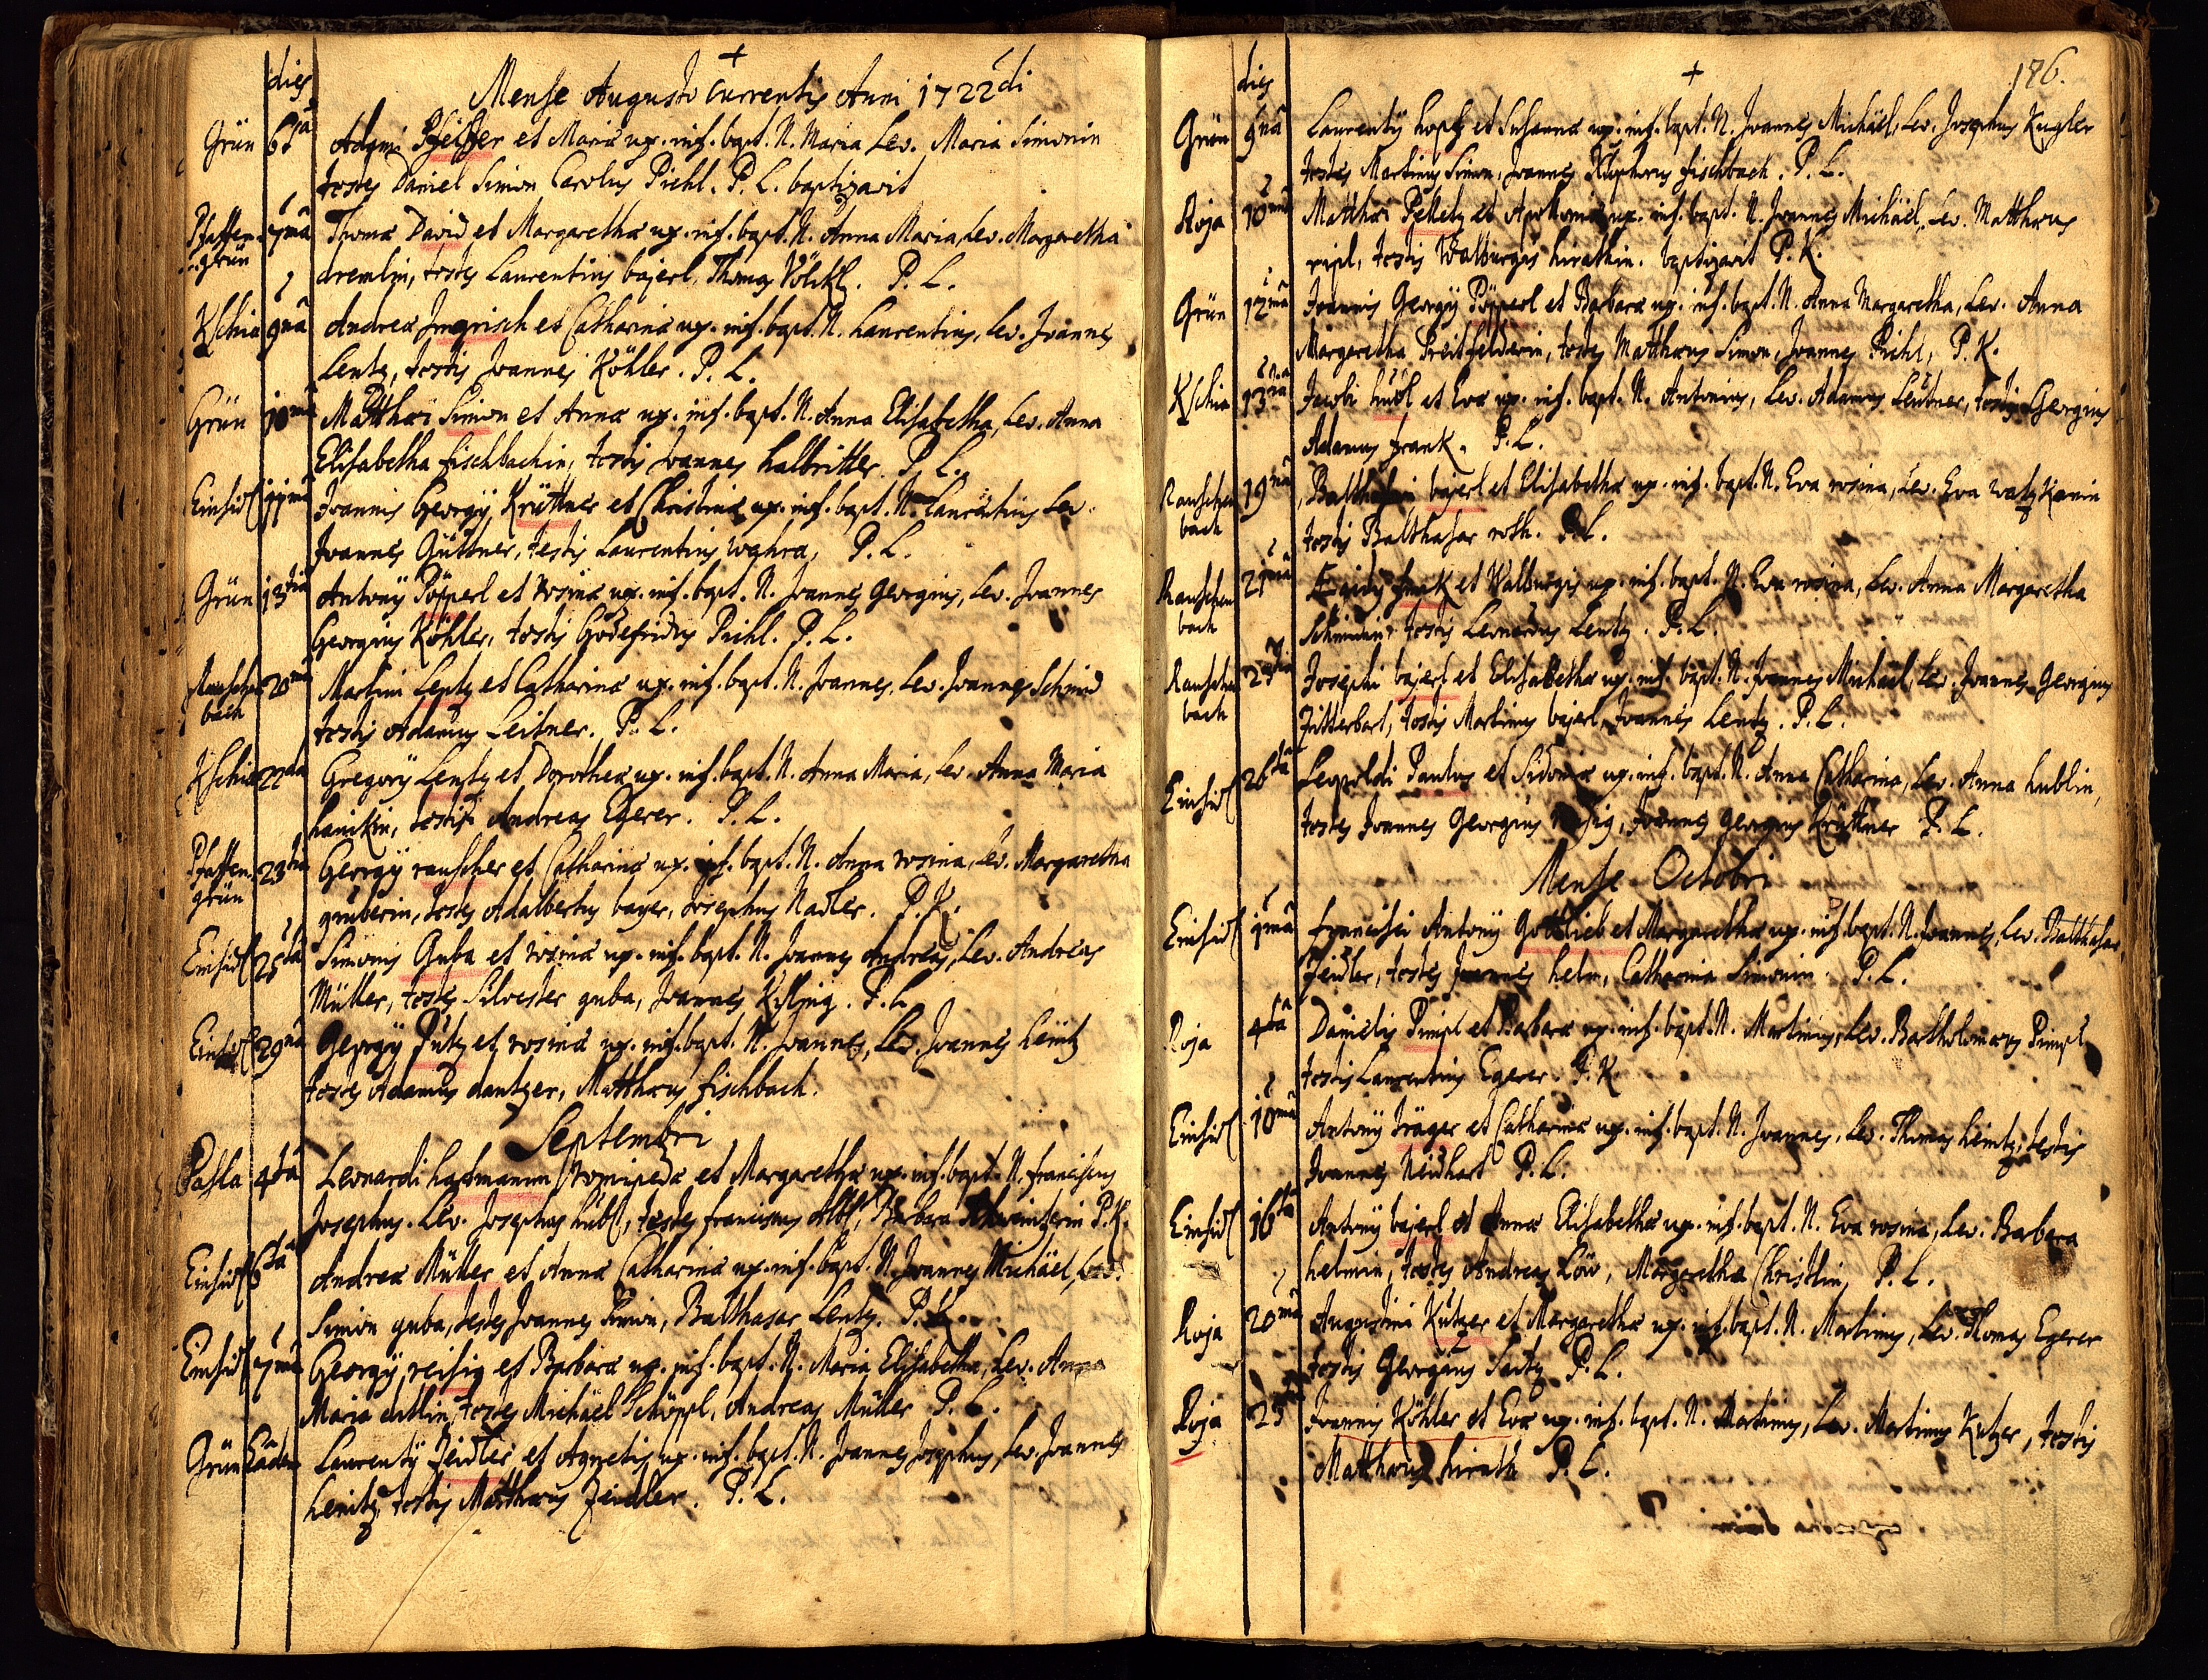 dies
Mense Augusto Currentis Anni 1722di
Grün 6ta Adami Pfeiffer et Mariæ ux. inf. bapt. N. Maria Lev. Maria Simonin
testes Daniel Simon Carolus Piehl. P. L. baptizavit
Pfaffen-grün 7ma Thomæ David et Margarethæ ux. inf. bapt. N. Anna Maria, Lev. Margaretha
dremlin, testes Laurentius bajerl, Thomas Völckl. P. L.
Kschia 9na Andreæ Jmgrisch et Catharinæ ux. inf. bapt. N. Laurentius, Lev. Joannes
Lentz, testis Joannes Köhler. P. L.
Grün 10ma Matthæi Simon et Annæ ux. inf. bapt. N. Anna Elisabetha, Lev. Anna
Elisabetha fischbachin, testis Joannes halbritter. P. L.
Einsid 11ma Joannis Georgÿ Krüttner et Christinæ ux. inf. bapt. N. Laurentius Lev.
Joannes Güttner, testis Laurentius wahra, P. L.
Grün 13tia Antonÿ Pöpperl et rosinæ ux. inf. bapt. N. Joannes Georgius, Lev. Joannes
Georgius Köhler, testis Godefridus Piehl. P. L.
Rauschen bach 20ma Martini Lentz et Catharinæ ux. inf. bapt. N. Joannes, Lev. Joannes Schmid
testis Adamus Leitner. P. L.
Kschia 22da Gregorÿ Lentz et Dorotheæ ux. inf. bapt. N. Anna Maria, Lev. Anna Maria
hanikin, testis Andreas Egerer. P. L.
Pfaffen-grün 23tia Georgÿ rauscher et Catharinæ ux. inf. bapt. N. Anna rosina, Lev. Margaretha
gruberin, testes Adalbertus bayer, Josephus Nadler. P. K.
Einsid 25ta Simonis Guba et rosinæ ux. inf. bapt. N. Joannes Andreas, Lev. Andreas
Müller, testes Silvester guba, Joannes P. L.
Einsid 29na Georgÿ Putz et rosinæ ux. inf. bapt. N. Joannes, Lev. Joannes heintz
testes Adamus dantzer, Matthæus fischbach.
Septembri
Pasla 4ta Leonardi hartmann et Margarethæ ux. inf. bapt. N. franciscus
Josephus. Lev. Josephus hübl, testes franciscus Albl, Barbara P. K.
Einsid 6ta Andreæ Müller et Annæ Catharinæ ux. inf. bapt. N. Joannes Michäel, Lev.
Simon guba, testes Joannes Simon, Balthasar Lentz. P. K.
Einsid 7ma Georgÿ reisig et Barbaræ ux. inf. bapt. N. Maria Elisabetha, Lev. Anna
Maria testes Michäel Schöppl, Andreas Müller P. L.
Grün Eadem Laurentÿ Zeidler et Agnetis ux. inf. bapt. N. Joannes Josephus, Lev. Joannes
heintz, testis Matthæus Zeidler. P. L.
dies
186.
Grün 9na Laurentÿ et Susannæ ux. inf. bapt. N. Joannes Michäel, Lev. Josephus Kugler
testes Martinus Simon, Joannes fischbach. P. L.
Roja 10ma Matthæi Pelletz et Apolloniæ ux. inf. bapt. N. Joannes Michäel, Lev. Matthæus
testis Walburgis hirathin. baptizavit P. K.
Grün 12ma Joannis Georgÿ Pöpperl et Barbaræ ux. inf. bapt. N. Anna Margaretha, Lev. Anna
Margaretha Preitfelderin, testes Matthæus Simon, Joannes Piehl, P. K.
Kschia 13tia Jacobi hübl et Evæ ux. inf. bapt. N. Antonius, Lev. Adamus Leütner, testis Georgius
Adamus frank. P. L.
Rauschen bach 19na Balthasari bajerl et Elisabethæ ux. inf. bapt. N. Eva rosina, Lev. Eva watzkanin
testis Balthasar roth. P. L.
Rauschen bach 21ma Egidÿ frank et Walburgis ux. inf. bapt. N. Eva rosina, Lev. Anna Margaretha
Schmidin, testis Leonardus Lentz. P. L.
Rauschen bach Josephi bajerl et Elisabethæ ux. inf. bapt. N. Joannes Michäel, Lev. Joannes Georgius
Zitterbart, testis Martinus bajerl, Joannes Lentz. P. L.
Einsid 26ta Leopoldi Paulus et Sidoniæ ux. inf. bapt. N. Anna Catharina, Lev. Anna hublin,
testes Joannes Georgius reisig, Joannes Georgius Krüttner P. L.
Mense Octobri
Einsid 1ma francisci Antonÿ Gottlieb et Margarethæ ux. inf. bapt. N. Joannes, Lev. Balthasar
Zeidler, testes Joannes helm, Catharina Simonin. P. L.
Roja 4ta Danielis Pimpl et Barbaræ ux. inf. bapt. N. Martinus, Lev. Bartholomæus Pimpl,
testis Laurentius Egerer. P. K.
Einsid 10ma Antonÿ träger et Catharinæ ux. inf. bapt. N. Joannes, Lev. Thomas heintz, testis
Joannes Neidhart P. L.
Einsid 16ta Antonÿ bajerl et Annæ Elisabethæ ux. inf. bapt. N. Eva rosina, Lev. Barbara
helmin, testes Andreas Löw, Margaretha Christlin, P. L.
Roja 20ma Augustini Kutzer et Margarethæ ux. inf. bapt. N. Martinus, Lev. Thomas Egerer
testis Georgius Saitz P. L.
Roja Joannis Köhler et Evæ ux. inf. bapt. N. Martinus, Lev. Martinus Kutzer, testis
Matthæus hirath P. L.